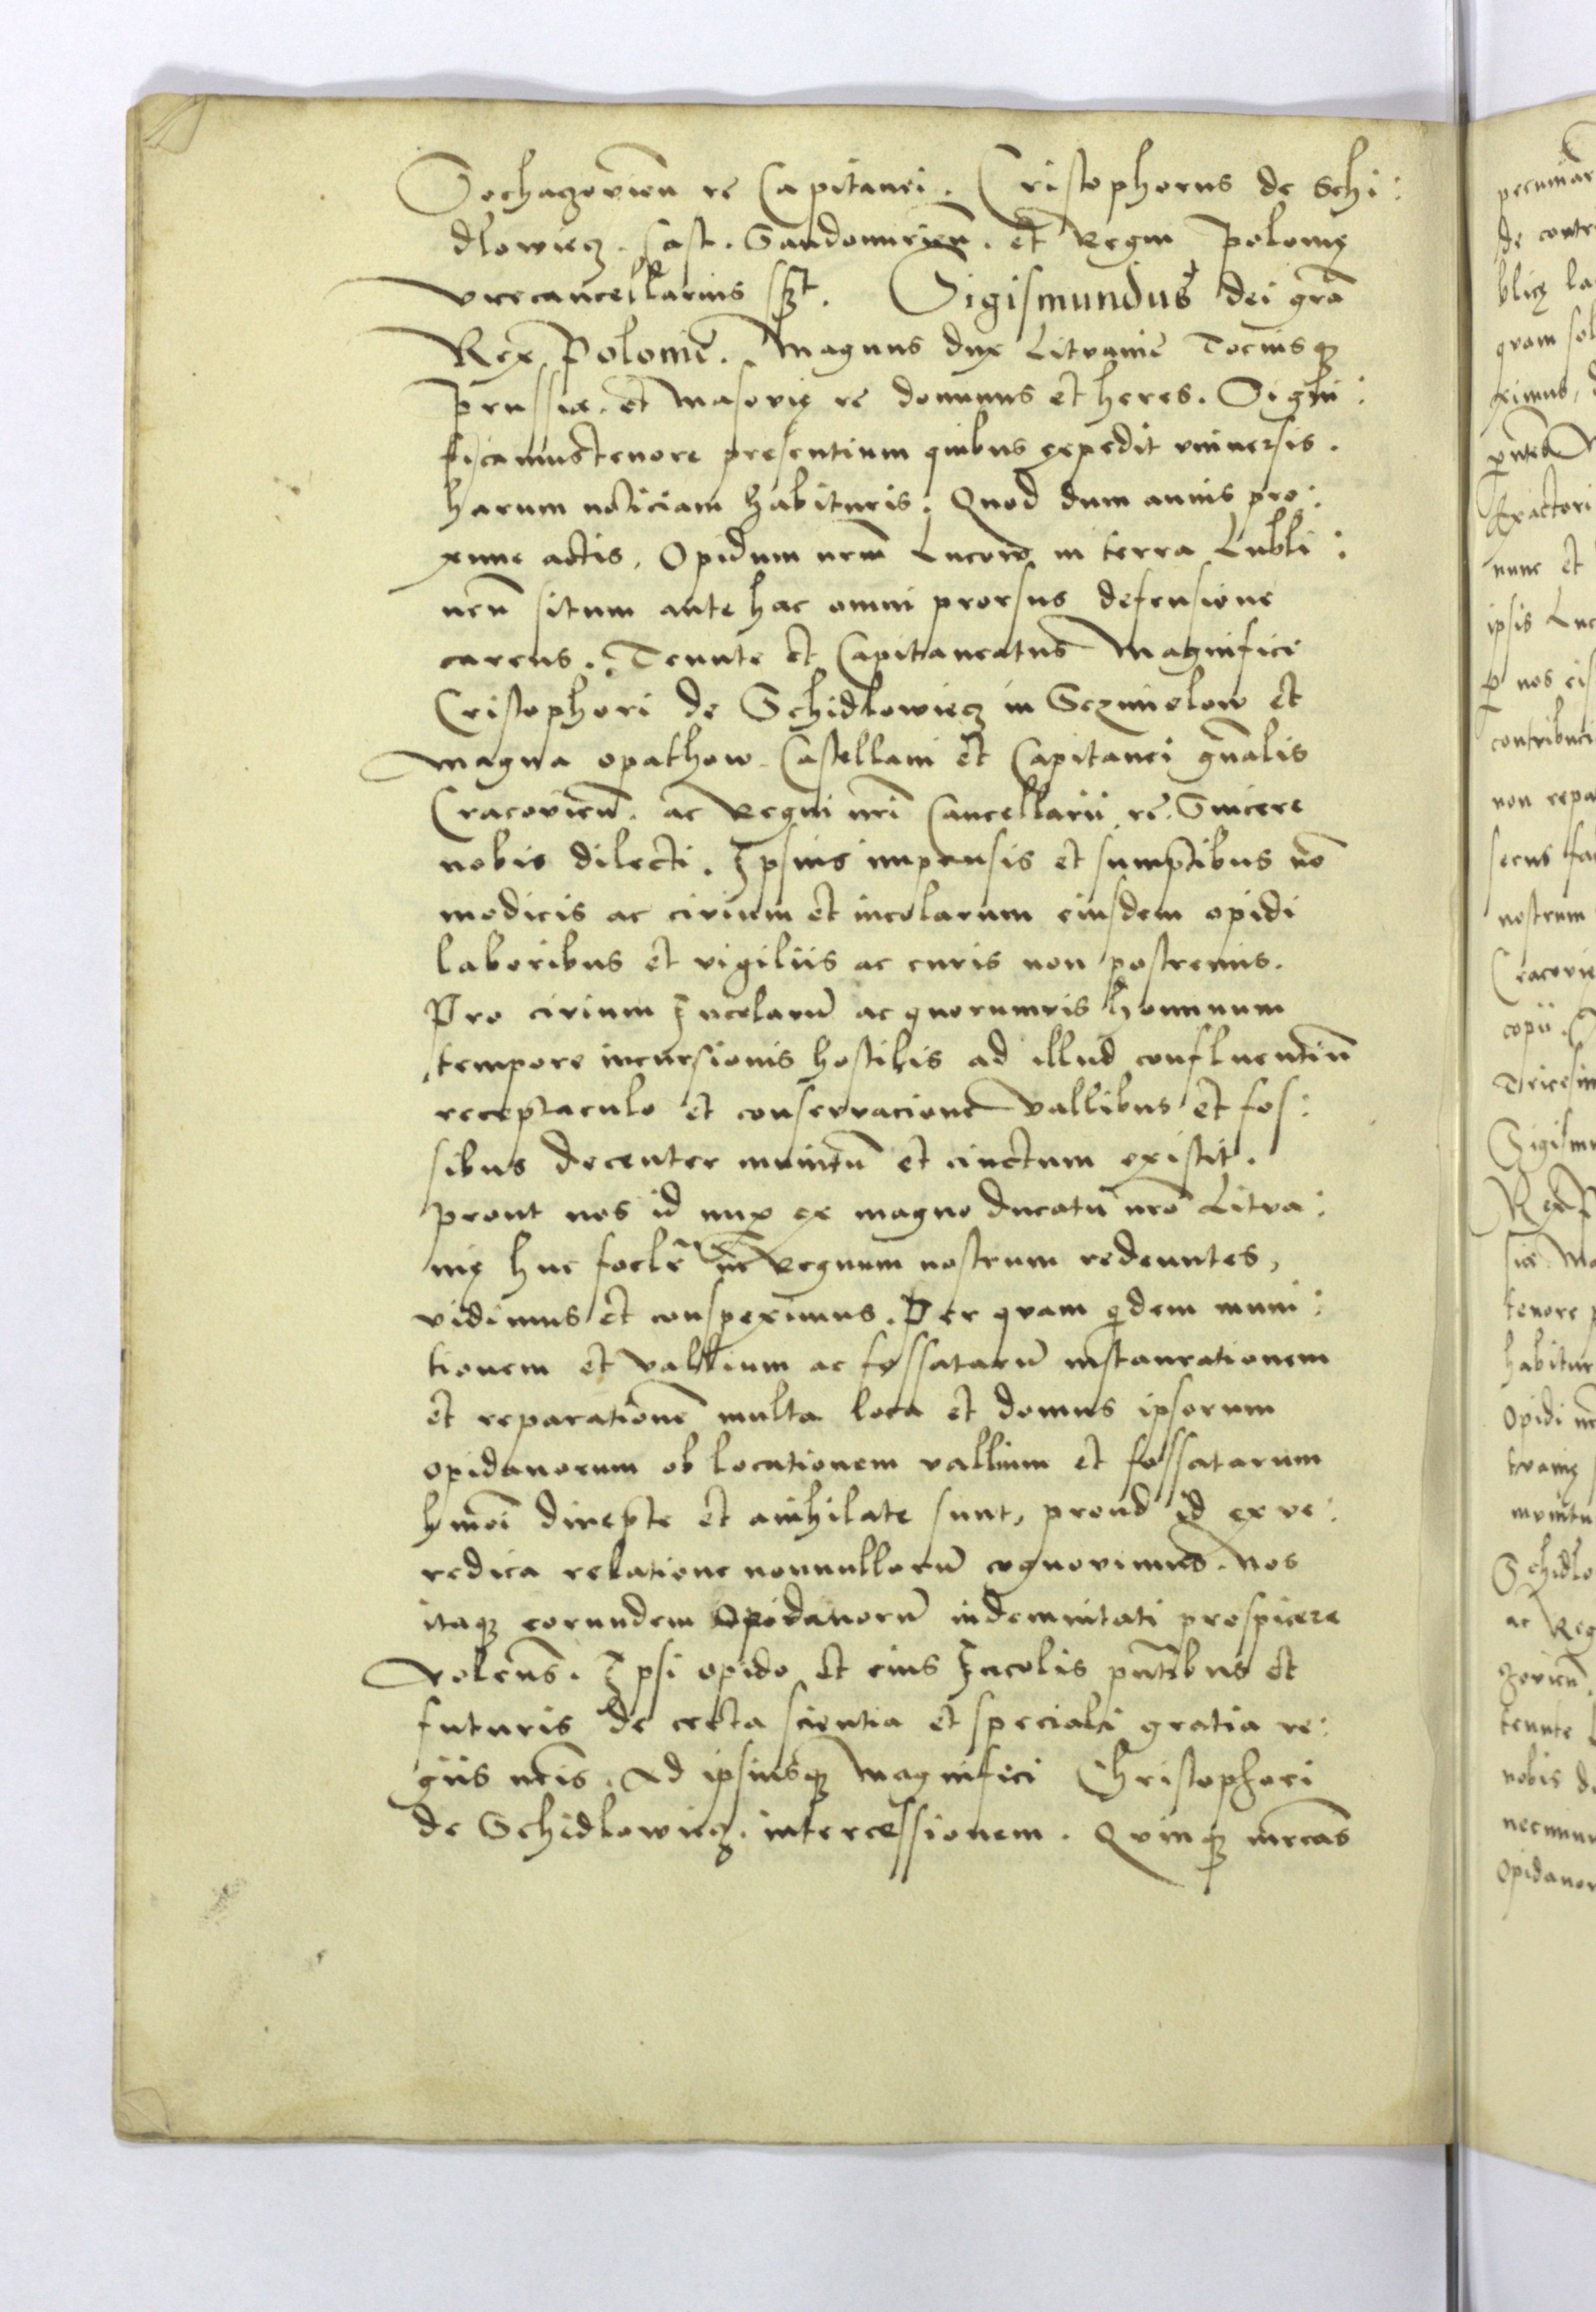 Sochazovien̄ rc Capitanei. Cristophorus de Schi:
dlowiecz. Cast. Sandomirien̄. et Regni Polonię
vicecancellarius sszt. Sigismundus dei grā
Rex Polonie. Magnus dux Litvanie Tociusqz
Prussie. et Masovię rc dominus et heres. Signi:
ficamus tenore presentium quibus expedit vniuersis.
harum noticiam habituris. Quod dum annis pro:
xime actis, Opidum nrm̄ Lucow in terra Lubli:
nen̄ situm ante hac omni prorsus defensione
carens. Tenute et Capitaneatus Magnifici
Cristophori de Schidlowiecz in Sczmielow et
magna opathow. Castellani et Capitanei gn̄alis
Cracovien̄. ac Regni nri Cancellarii rc. Sincere
nobis dilecti. Ipsius impensis et sumptibus nō
modicis ac civium et incolarum eiusdem opidi
laboribus et vigiliis ac curis non postremis.
Pro civium Incolarū ac quorumvis hominum
tempore incursionis hostilis ad illud confluentiū
receptaculo et conservacione vallibus et fos:
sibus decenter munitū et cinctum existit.
prout nos id nup̱ ex magno ducatu nrō Litva:
nię huc foelr̄ in Regnum nostrum redeuntes,
vidimus et conspeximus. Per quam qdem muni:
tionem et vallium ac fossatarū instaurationem
et reparationē multa loca et domus ipsorum
opidanorum ob locutionem vallium et fossatarum
hmōi direpte et anihilate sunt, proud id ex ve:
redica relatione nonnullorū cognovimus. Nos
itaqz eorundem Opidanorū indemnitati prospicere
volens. Ipsi opido et eius Incolis pn̄tibus et
futuris de certa scientia et speciali gratia re:
giis nrīs. Ad ipsiusqz Magnifici Christophori
de Schidlowiecz. intercessionem. Quinqz mrcas